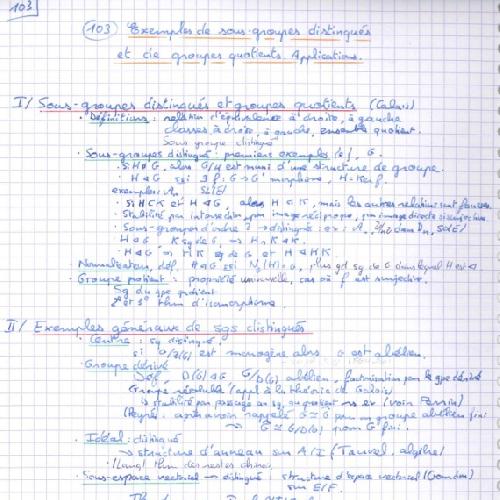 103
103 Exemples de sous-groupes distingués
et de groupes quotients. Applications.
I/ Sous-groupes distingués et groupes quotients (Calais)
• Définitions : relation d'équivalence à droite, à gauche
classes à droite, à gauche, ensemble quotient.
Sous groupe distingué
• Sous-groupes distingués : premiers exemples {e}, G.
Si H ⊲ G, alors G/H est muni d'une structure de groupe.
• H ⊲ G ssi ∃ f: G → G' morphisme, H = Ker f.
exemples: An
• Si H ⊂ K et H ⊲ G, alors H ⊲ K, mais les autres relations sont fausses.
• Stabilité par intersection, par image réciproque, par image directe si surjective.
• Sous-groupes d'indice 2 → distingué : ex : An
• H ⊲ G, K sg de G, → H ∩ K ⊲ K.
• H ⊲ G → HK sg de G et H ⊲ HK
Normalisateur, déf. H ⊲ G ssi NG(H) = G, plus gd sg de G dans lequel H est ⊲
• Groupe quotient : propriété universelle, cas où f est surjective.
Sg du gpe quotient
2e et 3e thm d'isomorphisme.
II/ Exemples généraux de sgs distingués
• Centre : sg distingué,
si G/Z(G) est monogène alors G est abélien.
• Groupe dérivé
Déf, D(G) ⊲ G G/D(G) abélien, factorisation par le gpe dérivé
Groupe résoluble (appl à la théorie de Galois)
→ stabilité par passage au sg, au quotient (voir Perrin)
• Idéal : distingué
→ structure d'anneau sur A/I (Tauvel, algèbre)
thm des restes chinois,
• Sous-espace vectoriel → distingué structure d'espace vectoriel (Gourdon)
sur E/F.